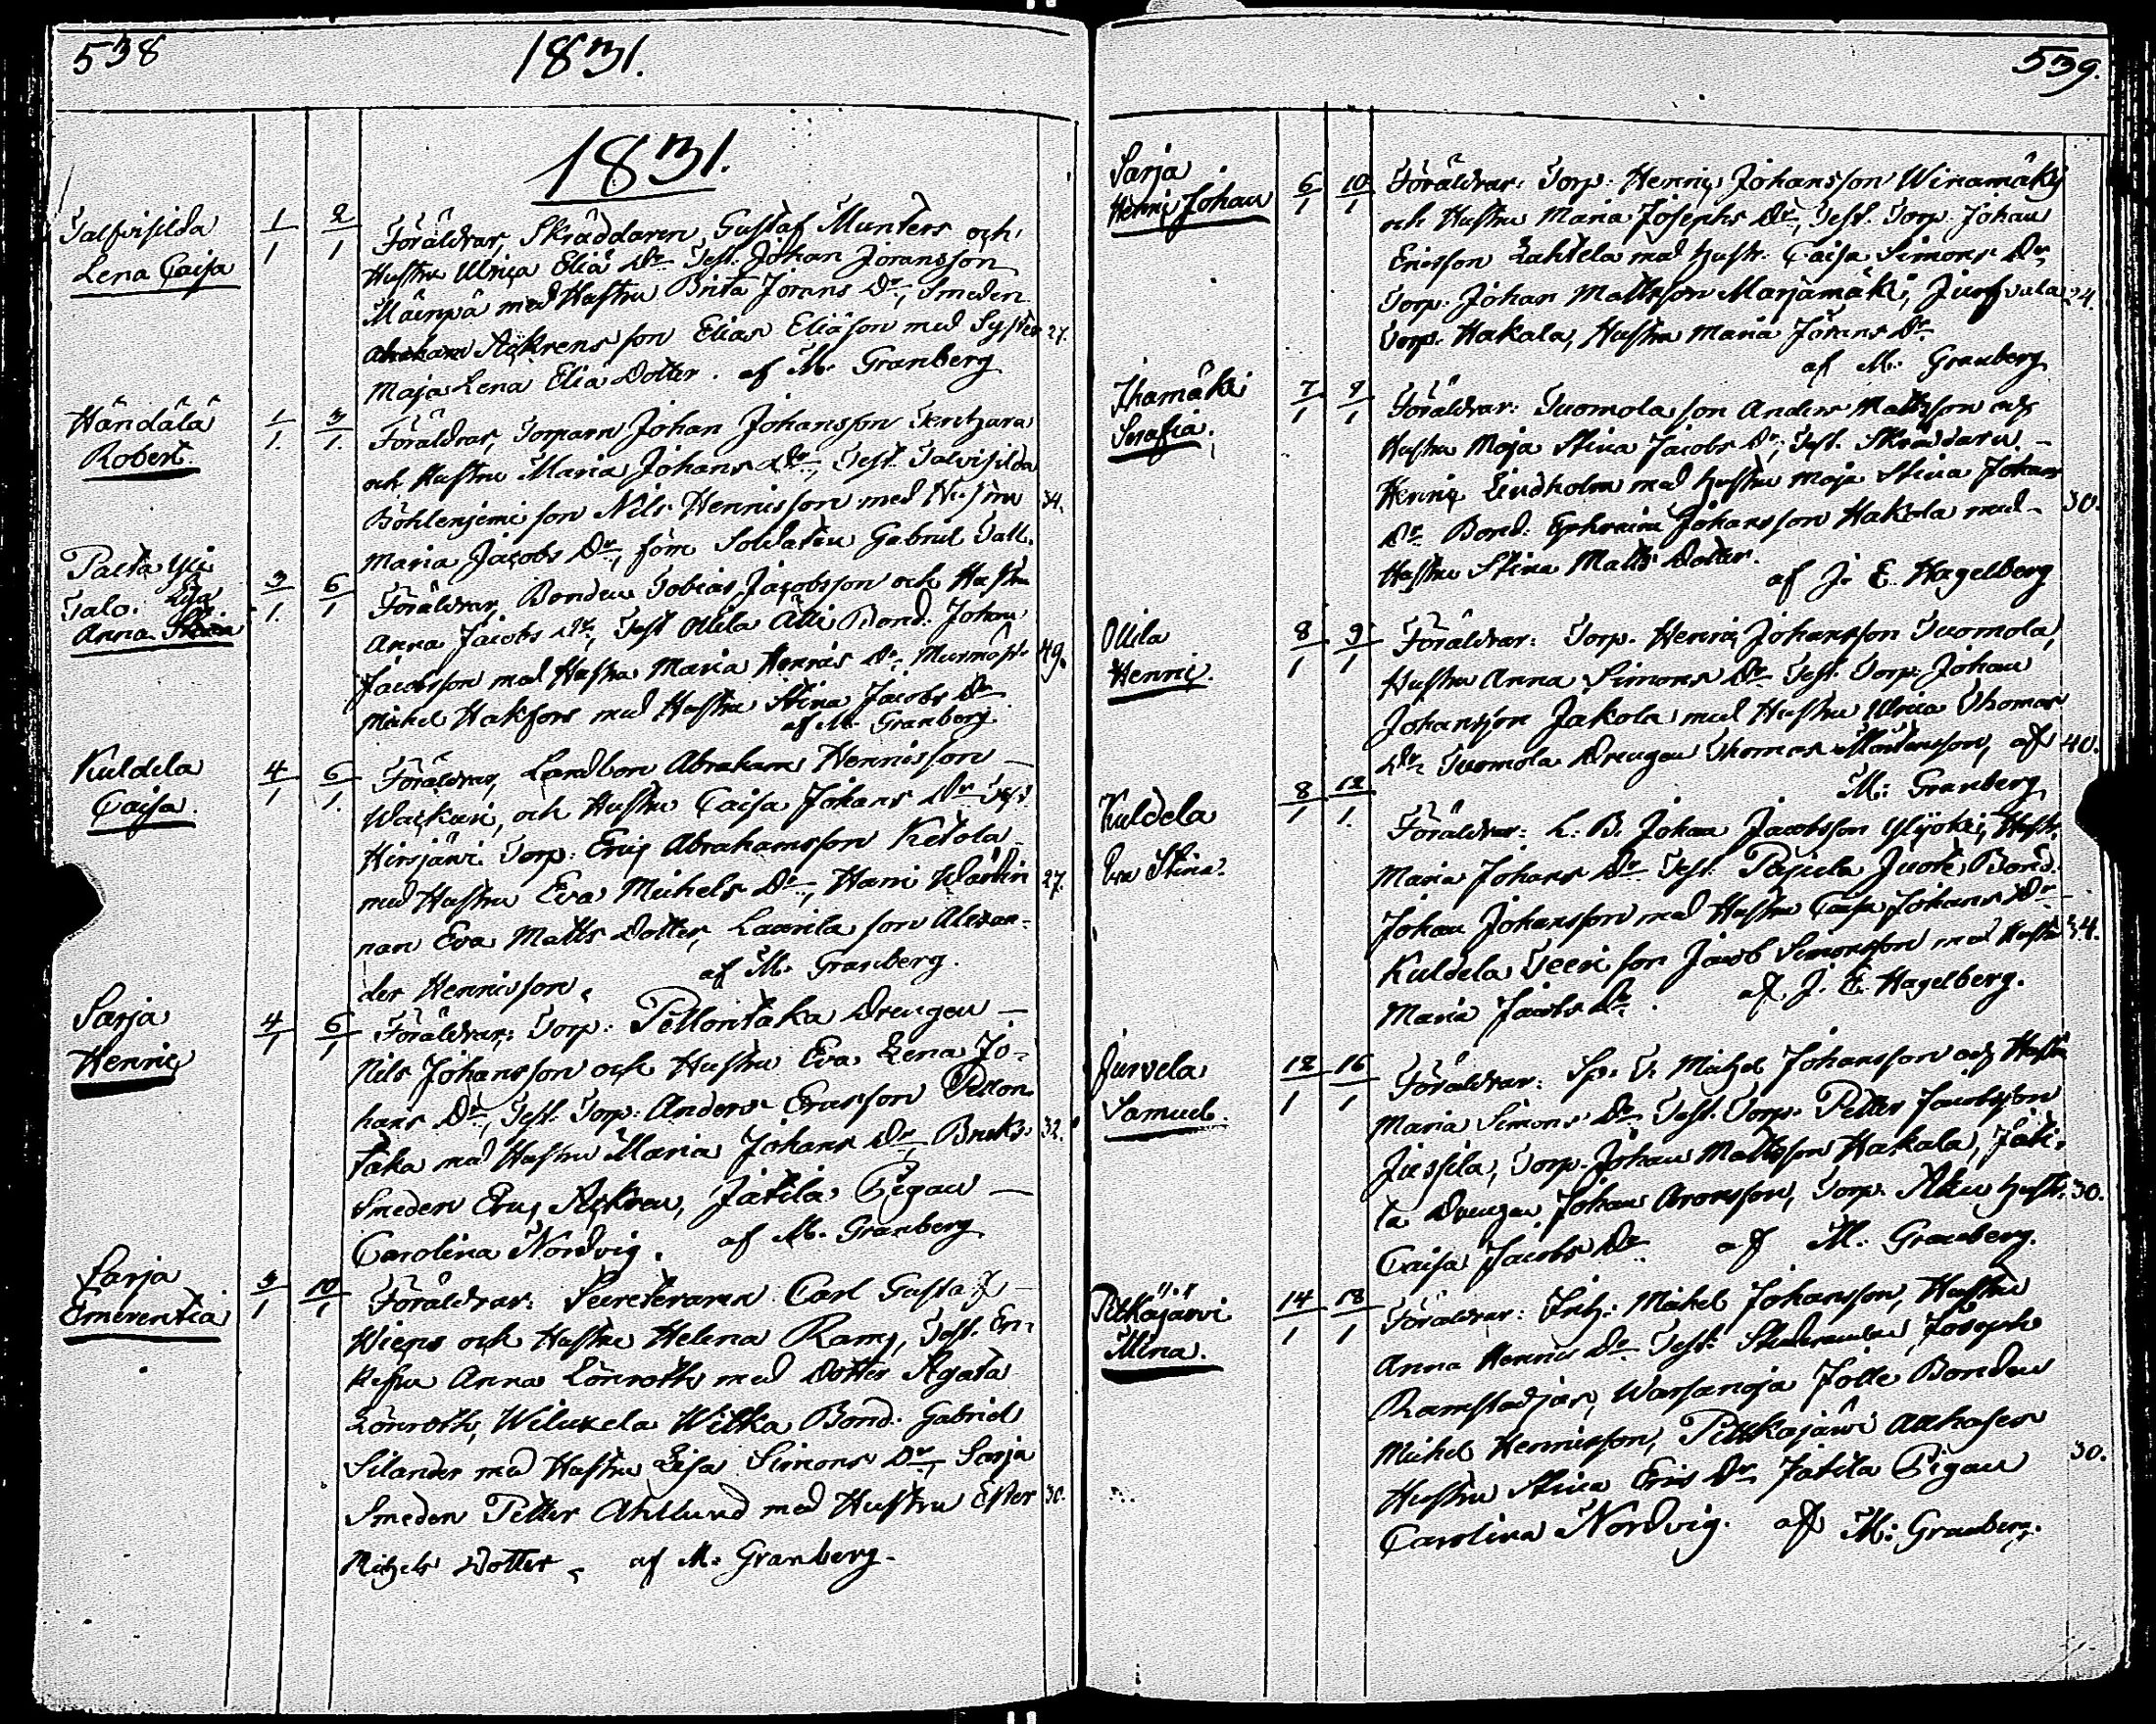 538
1831.
1831.
Talfvisilda
Lena Caisa
1/1
2/1
Föräldrar, Skräddaren Gustaf Munters och
Hustru Ulrica Eliä Dr. Test. Johan Joransson
Mäenpä med Hustru Brita Jorans Dr., Smeden
Abraham Ackrens son Elias Eliäson med Syster
27.
Maja Lena Eliä Dotter. af M. Granberg
Händälä
Robert
1/1.
3/1.
Föräldrar, Torparn Johan Johansson
och Hustru Maria Johans Dr., Test. Talvisilda
son Nils Hennisson med Hustru
34.
Maria Jacobs Dr., förre Soldaten Gabriel Tall.
Palta Yli
Talo. Lisa
Anna
3/1.
6/1
Föräldrar, Bonden Tobias Jacobsson och Hustru
Anna Jacobs Dr., Test Ollila Alli Bond. Johan
Jacobsson med Hustru Maria Henriks Dr.,
49.
Michel Hakfors med Hustru Stina Jacobs Dr.
af M. Granberg
Kuldela
Caisa.
4/1
6/1.
Föräldrar, Landbon Abraham Hennisson
och Hustru Caisa Johans Dr. Test
Hirsjärvi Torp: Eric Abrahamsson Ketola
med Hustru Eva Michels Dr., Harri Wärdin
27.
nan Eva Matts Dotter, Laurila son Alexan-
der Hennisson, af M. Granberg.
Sarja
Henric
4/1
6/1
Föräldrar: Torp: Pellontaka Drengen
Nils Johansson och Hustru Eva Lena Jo-
hans Dr., Test. Torp: Anders Ericsson Pellon
taka med Hustru Maria Johans Dr., Bruks
32.
Smeden Eric Ackren, Jatila Pigan
Carolina Nordvig. af M. Granberg
Sarja
Emerentia
5/1
10/1
Föräldrar: Secreteraren Carl Gustaf
och Hustru Helena Ramj, Test. En-
kefru Anna Lönroth med Dotter Agata
Lönroth, Wiluxela Witka Bond. Gabriel
Silander med Hustru Lisa Simons Dr., Sarja
Smeden Petter Ahllund med Hustru Ester
30.
Michels Dotter, af M. Granberg.
539.
Sarja
Henric Johan
6/1
10/1
Föräldrar: Torp: Henric Johansson Winamäki
och Hustru Maria Josephs Dr., Test. Torp. Johan
Ericsson Lahtela med Hustr. Caisa Simons Dr.,
Torp. Johan Mattsson Marjamäki, Jurfvala
24.
Torp. Hakala, Hustru Maria Jörans Dr.
af M. Granberg
Ihamäki
Serafia.
7/1
9/1
Föräldrar: Tuomola son Anders Mattsson och
Hustru Maja Stina Jacobs Dr., Test. Skräddaren
Henric Lindholm med Hustru Maja Stina Johans
Dr. Bond. Ephraim Johansson Hakola med
30.
Hustru Stina Matts Dotter.
af J. E. Hagelberg
Ollila
Henric.
8/1
9/1
Föräldrar: Torp. Henric Johansson Tuomola,
Hustru Anna Simons Dr. Test. Torp. Johan
Johansson Jakola med Hustru Ulrica Thomas
Dr. Tuomola Drengen Thomas Mårtensson, af
40.
M. Granberg
Kuldela
Eva Stina.
8/1
12/1.
Föräldrar: L. B. Johan Jacobsson Ylijoki, Hustr.
Maria Johans Dr. Test. Pajula Juoti Bond.
Johan Johansson med Hustru Caisa Johans Dr.
Kuldela Teeri son Jacob Simonsson med Hustru
34.
Maria Jacobs Dr. af J. E. Hagelberg.
Jurvela
Samuel.
12/1
16/1
Föräldrar: Sp. T. Michel Johansson och Hustru
Maria Simons Dr. Test. Torp. Petter Jacobsson
Jussila, Torp. Johan Mattsson Hakala, Jati-
la Drengen Johan Aronsson, Torp. Aku Hustr.
30.
Caisa Jacobs Dr. af M. Granberg.
Pitkäjärvi
Mina.
14/1
18/1
Föräldrar: Inh: Michel Johansson, Hustru
Anna Henrics Dr. Test: Joseph
Ramstadjus, Warsanoja Jolle Bonden
Michel Hennisson, Pittkäjärvi
30.
Hustru Stina Erics Dr. Jatila Pigan
Carolina Nordvig. af M. Granberg.